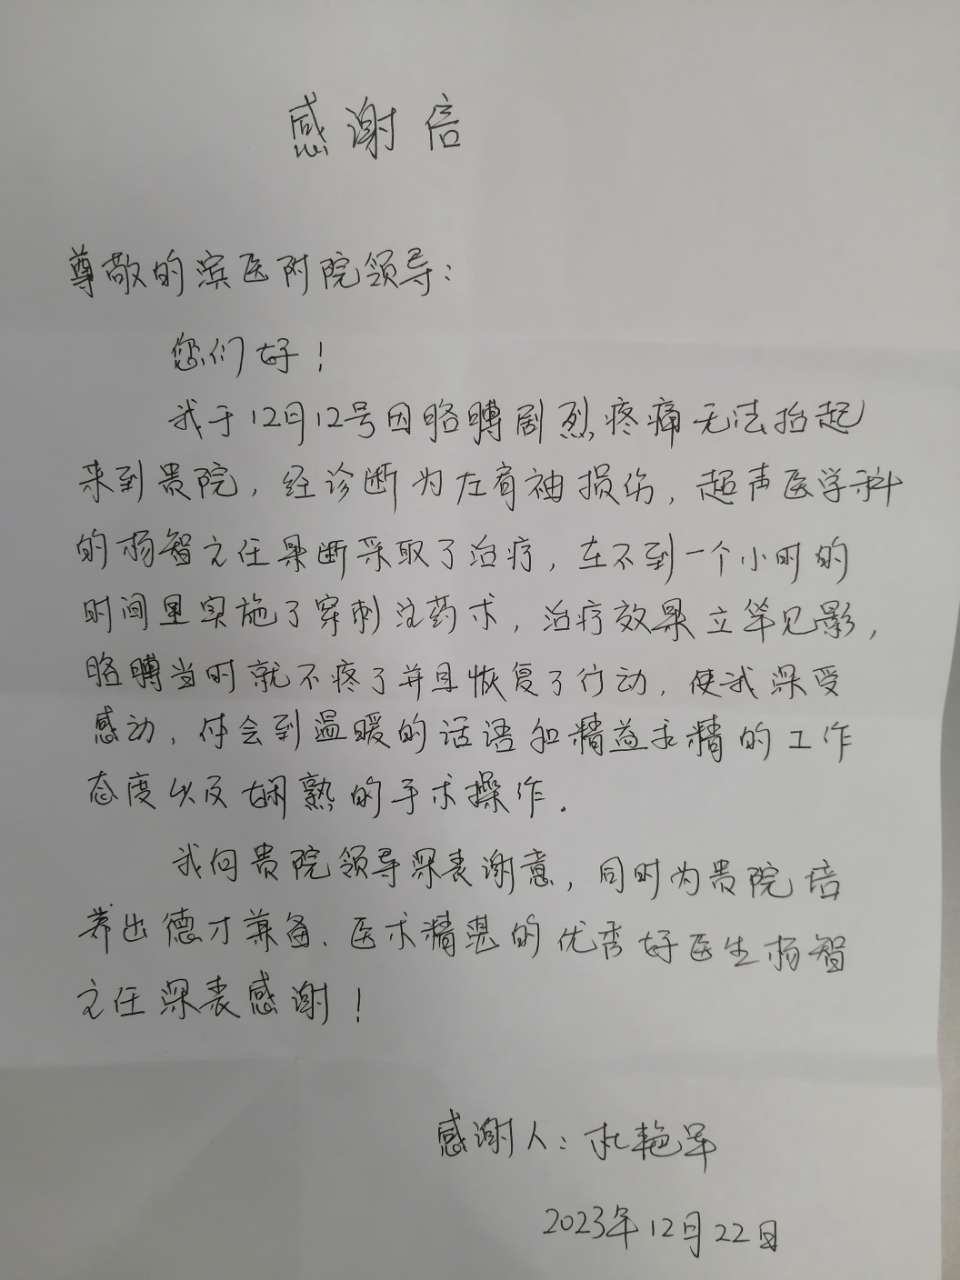 感谢信
尊敬的滨医附院领导：
您们好！
我于12月12号因胳膊剧烈疼痛无法抬起
来到贵院，经诊断为左肩袖损伤，超声医学科
的杨智主任果断采取了治疗，在不到一个小时的
时间里实施了穿刺注药术，治疗效果立竿见影，
胳膊当时就不疼了并且恢复了行动，使我深受
感动，体会到温暖的话语和精益求精的工作
态度以及娴熟的手术操作.
我向贵院领导深表谢意，同时为贵院培
养出德才兼备、医术精湛的优秀好医生杨智
主任深表感谢！
感谢人：杜艳军
2023年12月22日